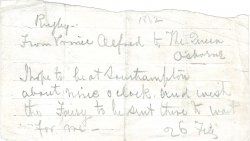 Rugby.
From Prince Alfred to The Queen
Osborne
I hope to be at Southampton
about nine o'clock. And
the Fairy to be sent there to wait
for me -
26